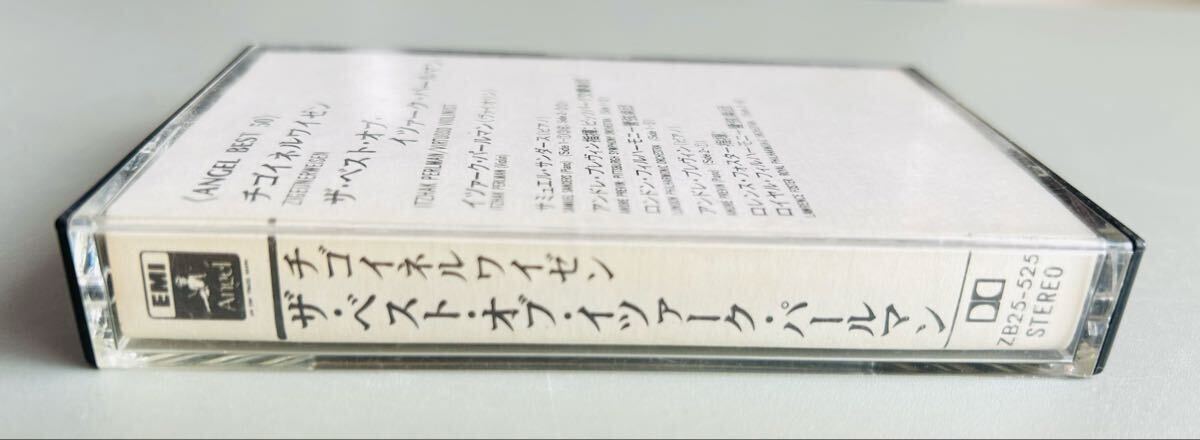 《ANGEL BEST 30》
チゴイネルワイゼン
ZIGEUNERWEISEN
ザ・ベスト・オブ・
イツァーク・パールマン
ITZHAK PERLMAN VIRTUOSO VIOLINIST
イツァーク・パールマン(ヴァイオリン)
ITZHAK PERLMAN (Violin)
サミュエル・サンダース(ピアノ)
アンドレ・プレヴィン指揮: ピッツバーグ交響楽団
ANDRE PREVIN: PITTSBURGH SYMPHONY ORCHESTRA
ロンドン・フィルハーモニー管弦楽団
LONDON PHILHARMONIC ORCHESTRA
アンドレ・プレヴィン(ピアノ)
ANDRE PREVIN (Piano)
ロレンス・フォスター指揮:
ロイヤル・フィルハーモニー管弦楽団
LAWRENCE FOSTER: ROYAL PHILHARMONIC ORCHESTRA
EMI
Angel
チゴイネルワイゼン
ザ・ベスト・オブ・イツァーク・パールマン
ZB25-525
STEREO